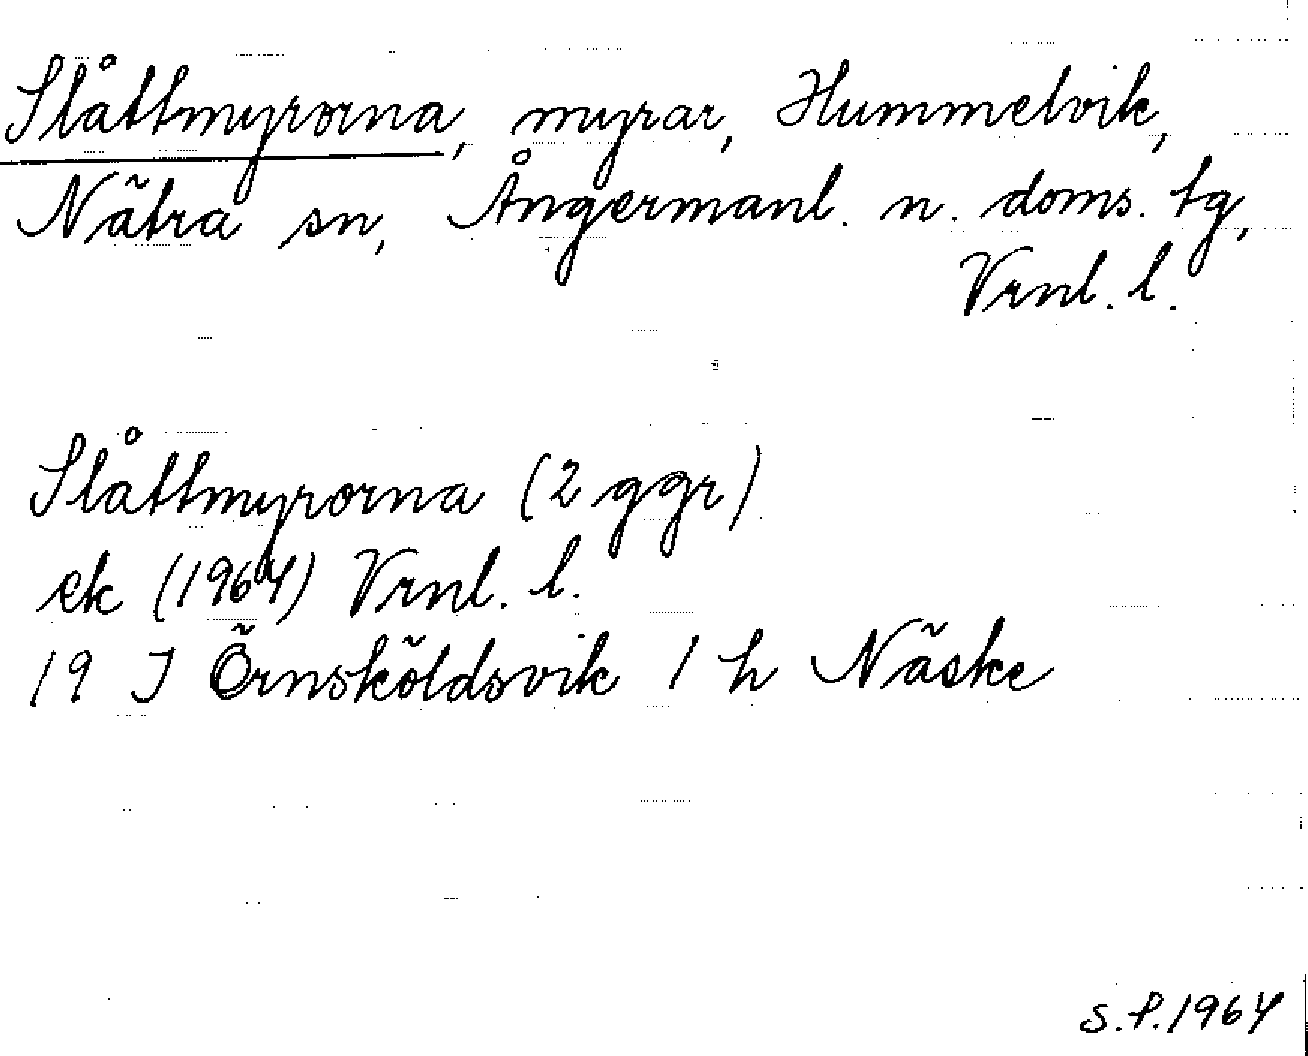 Slåttmyrorna, myrar, Hummelvik,
Nätra sn, Ångermanl. n. doms. tg,
Vrnl. l.
Slåttmyrorna (2 ggr)
ek (1964) Vrnl. l.
19 J Örnsköldsvik 1 h Näske
S.P. 1964